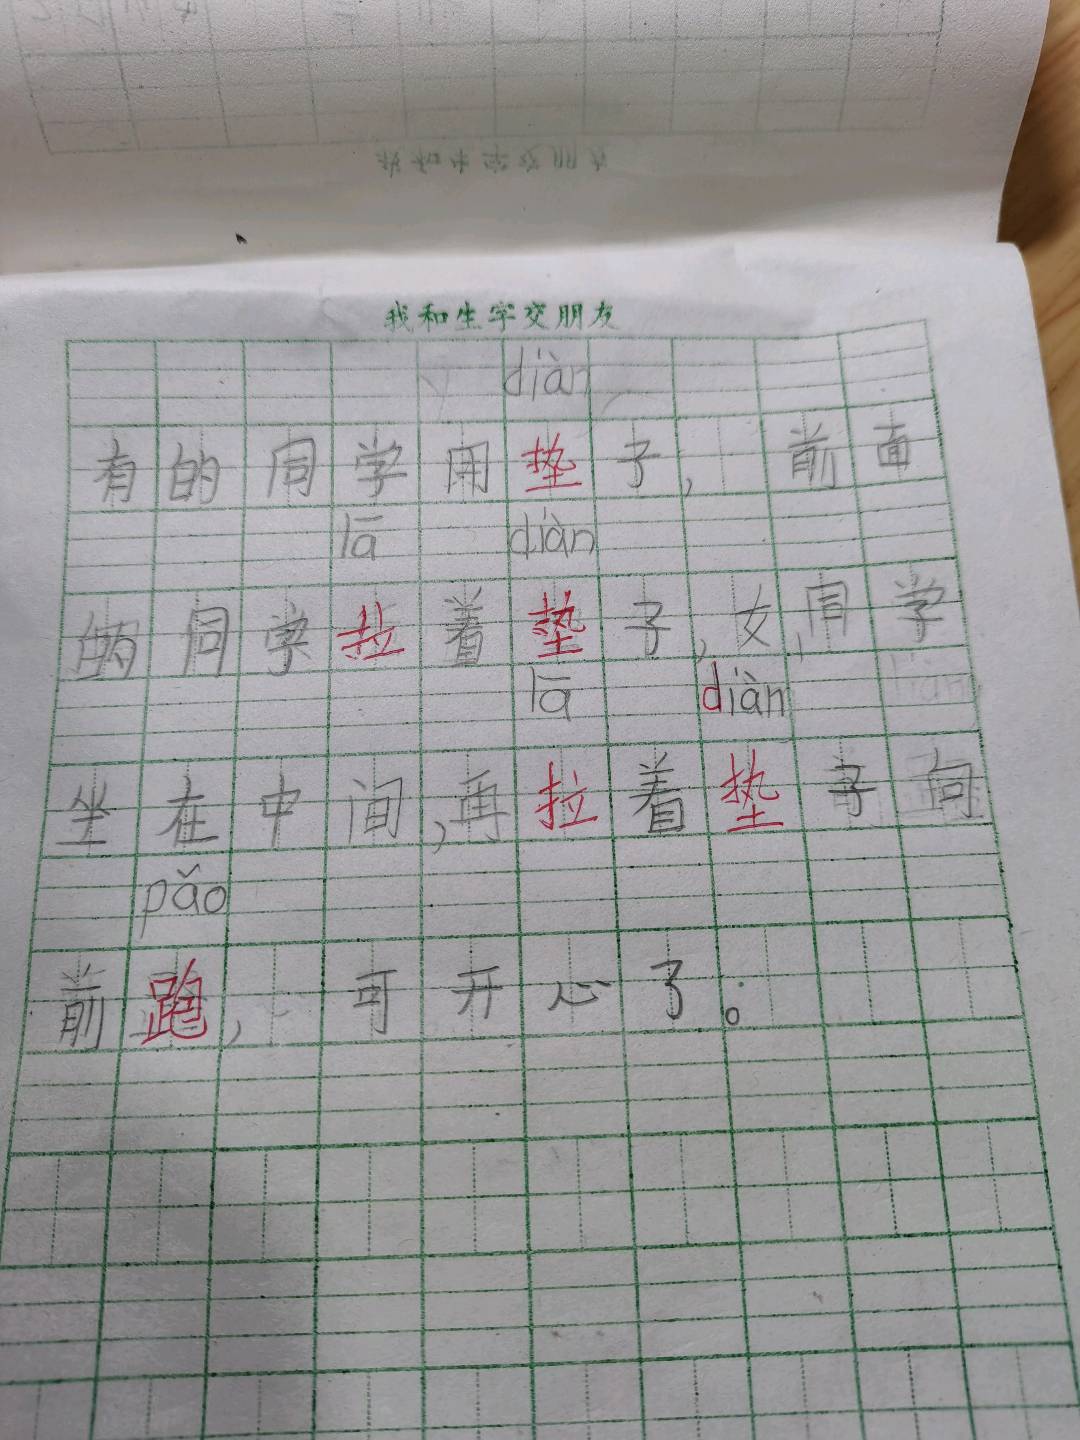 我和生字交朋友
diàn
有的同学用垫子，前面
lā diàn
的同学拉着垫子，女同学
lā diàn
坐在中间，再拉着垫子向
pǎo
前跑，可开心了。